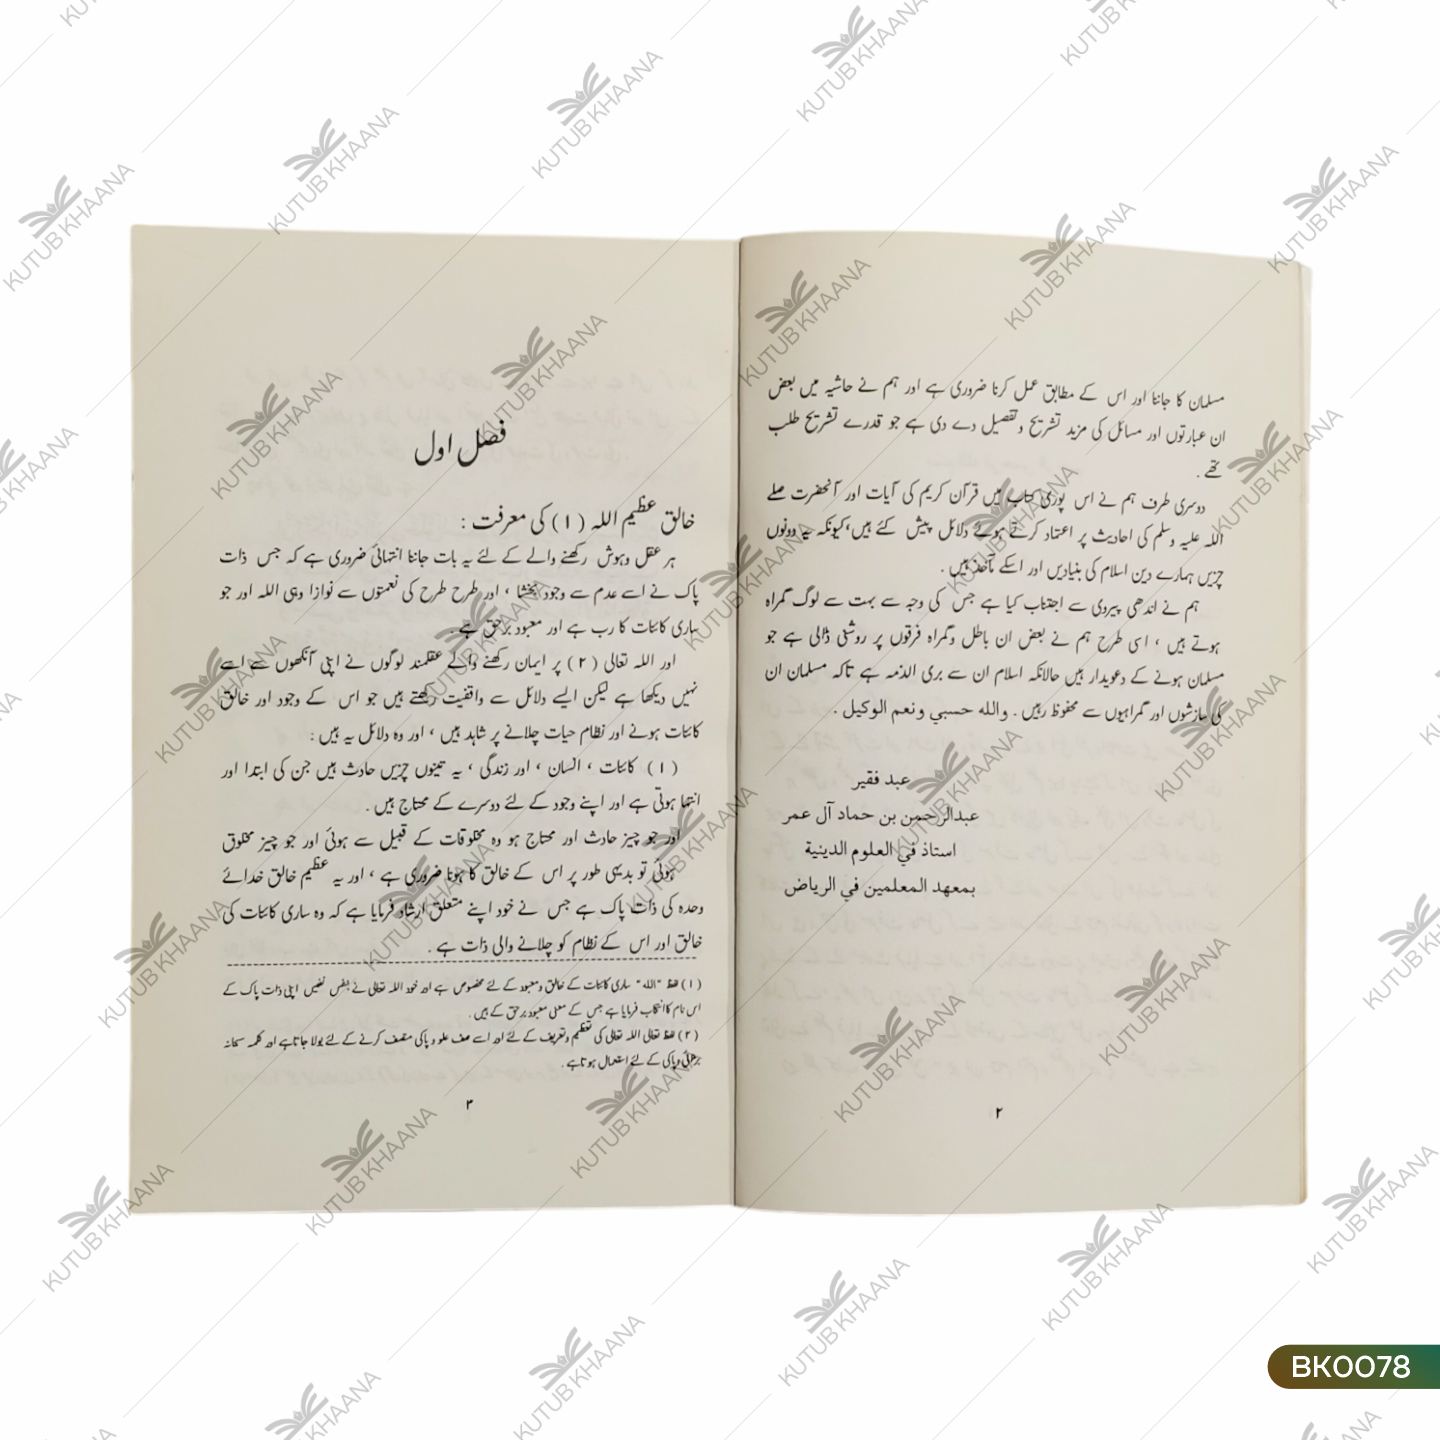 مسلمان کا جاننا اور اس کے مطابق عمل کرنا ضروری ہے اور ہم نے حاشیہ میں بعض
ان عبارتوں اور مسائل کی مزید تشریح وتفصیل دے دی ہے جو قدرے تشریح طلب
تھے ۔
دوسری طرف ہم نے اس پوری کتاب میں قرآن کریم کی آیات اور آنحضرت صلے
اللہ علیہ وسلم کی احادیث پر اعتماد کرتے ہوئے دلائل پیش کئے ہیں،کیونکہ یہ دونوں
چیزیں ہمارے دین اسلام کی بنیادیں اور اسکے مآخذ ہیں ۔
ہم نے اندھی پیروی سے اجتناب کیا ہے جس کی وجہ سے بہت سے لوگ گمراہ
ہوتے ہیں ، اسی طرح ہم نے بعض ان باطل وگمراہ فرقوں پر روشنی ڈالی ہے جو
مسلمان ہونے کے دعویدار ہیں حالانکہ اسلام ان سے بری الذمہ ہے تاکہ مسلمان ان
کی سازشوں اور گمراہیوں سے محفوظ رہیں ۔ والله حسبي ونعم الوكيل .
عبد فقیر
عبدالرحمن بن حماد آل عمر
استاذ في العلوم الدينية
بمعهد المعلمين في الرياض
۲
فصل اول
خالق عظیم اللہ ( ۱ ) کی معرفت :
ہر عقل وہوش رکھنے والے کے لئے یہ بات جاننا انتہائی ضروری ہے کہ جس ذات
پاک نے اسے عدم سے وجود بخشا ، اور طرح طرح کی نعمتوں سے نوازا وہی اللہ اور جو
ساری کائنات کا رب ہے اور معبود برحق ہے ۔
اور اللہ تعالی ( ۲ ) پر ایمان رکھنے والے عقلمند لوگوں نے اپنی آنکھوں سے اسے
نہیں دیکھا ہے لیکن ایسے دلائل سے واقفیت رکھتے ہیں جو اس کے وجود اور خالق
کائنات ہونے اور نظام حیات چلانے پر شاہد ہیں ، اور وہ دلائل یہ ہیں :
( ۱ ) کائنات ، انسان ، اور زندگی ، یہ تینوں چیزیں حادث ہیں جن کی ابتدا اور
انتہا ہوتی ہے اور اپنے وجود کے لئے دوسرے کے محتاج ہیں ۔
اور جو چیز حادث اور محتاج ہو وہ مخلوقات کے قبیل سے ہوئی اور جو چیز مخلوق
ہوئی تو بدیہی طور پر اس کے خالق کا ہونا ضروری ہے ، اور یہ عظیم خالق خدائے
وحدہ کی ذات پاک ہے جس نے خود اپنے متعلق ارشاد فرمایا ہے کہ وہ ساری کائنات کی
خالق اور اس کے نظام کو چلانے والی ذات ہے ۔
( ۱ ) لفظ "اللہ" ساری کائنات کے خالق ومعبود کے لئے مخصوص ہے اور خود اللہ تعالی نے بنفس نفیس اپنی ذات پاک کے
اس نام کا انتخاب فرمایا ہے جس کے معنی معبود برحق کے ہیں ۔
( ۲ ) لفظ تعالی اللہ تعالی کی تعظیم وتعریف کے لئے اور اسے صف علو وپاکی متصف کرنے کے لئے بولا جاتا ہے اور کلمہ سبحانہ
بڑائی وپاکی کے لئے استعمال ہوتا ہے ۔
۳
BK0078
KUTUB KHAANA